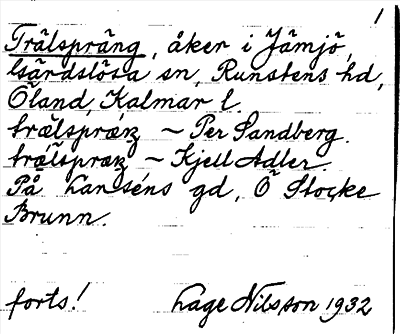 1
Trälspräng, åker i Jämjö,
Gärdslösa sn, Runstens hd,
Öland, Kalmar l.
trælspræŋ ~ Per Sandberg.
trælspræŋ ~ Kjell Adler.
På Larséns gd, Ö Stocke
Brunn.
forts! Lage Nilsson 1932